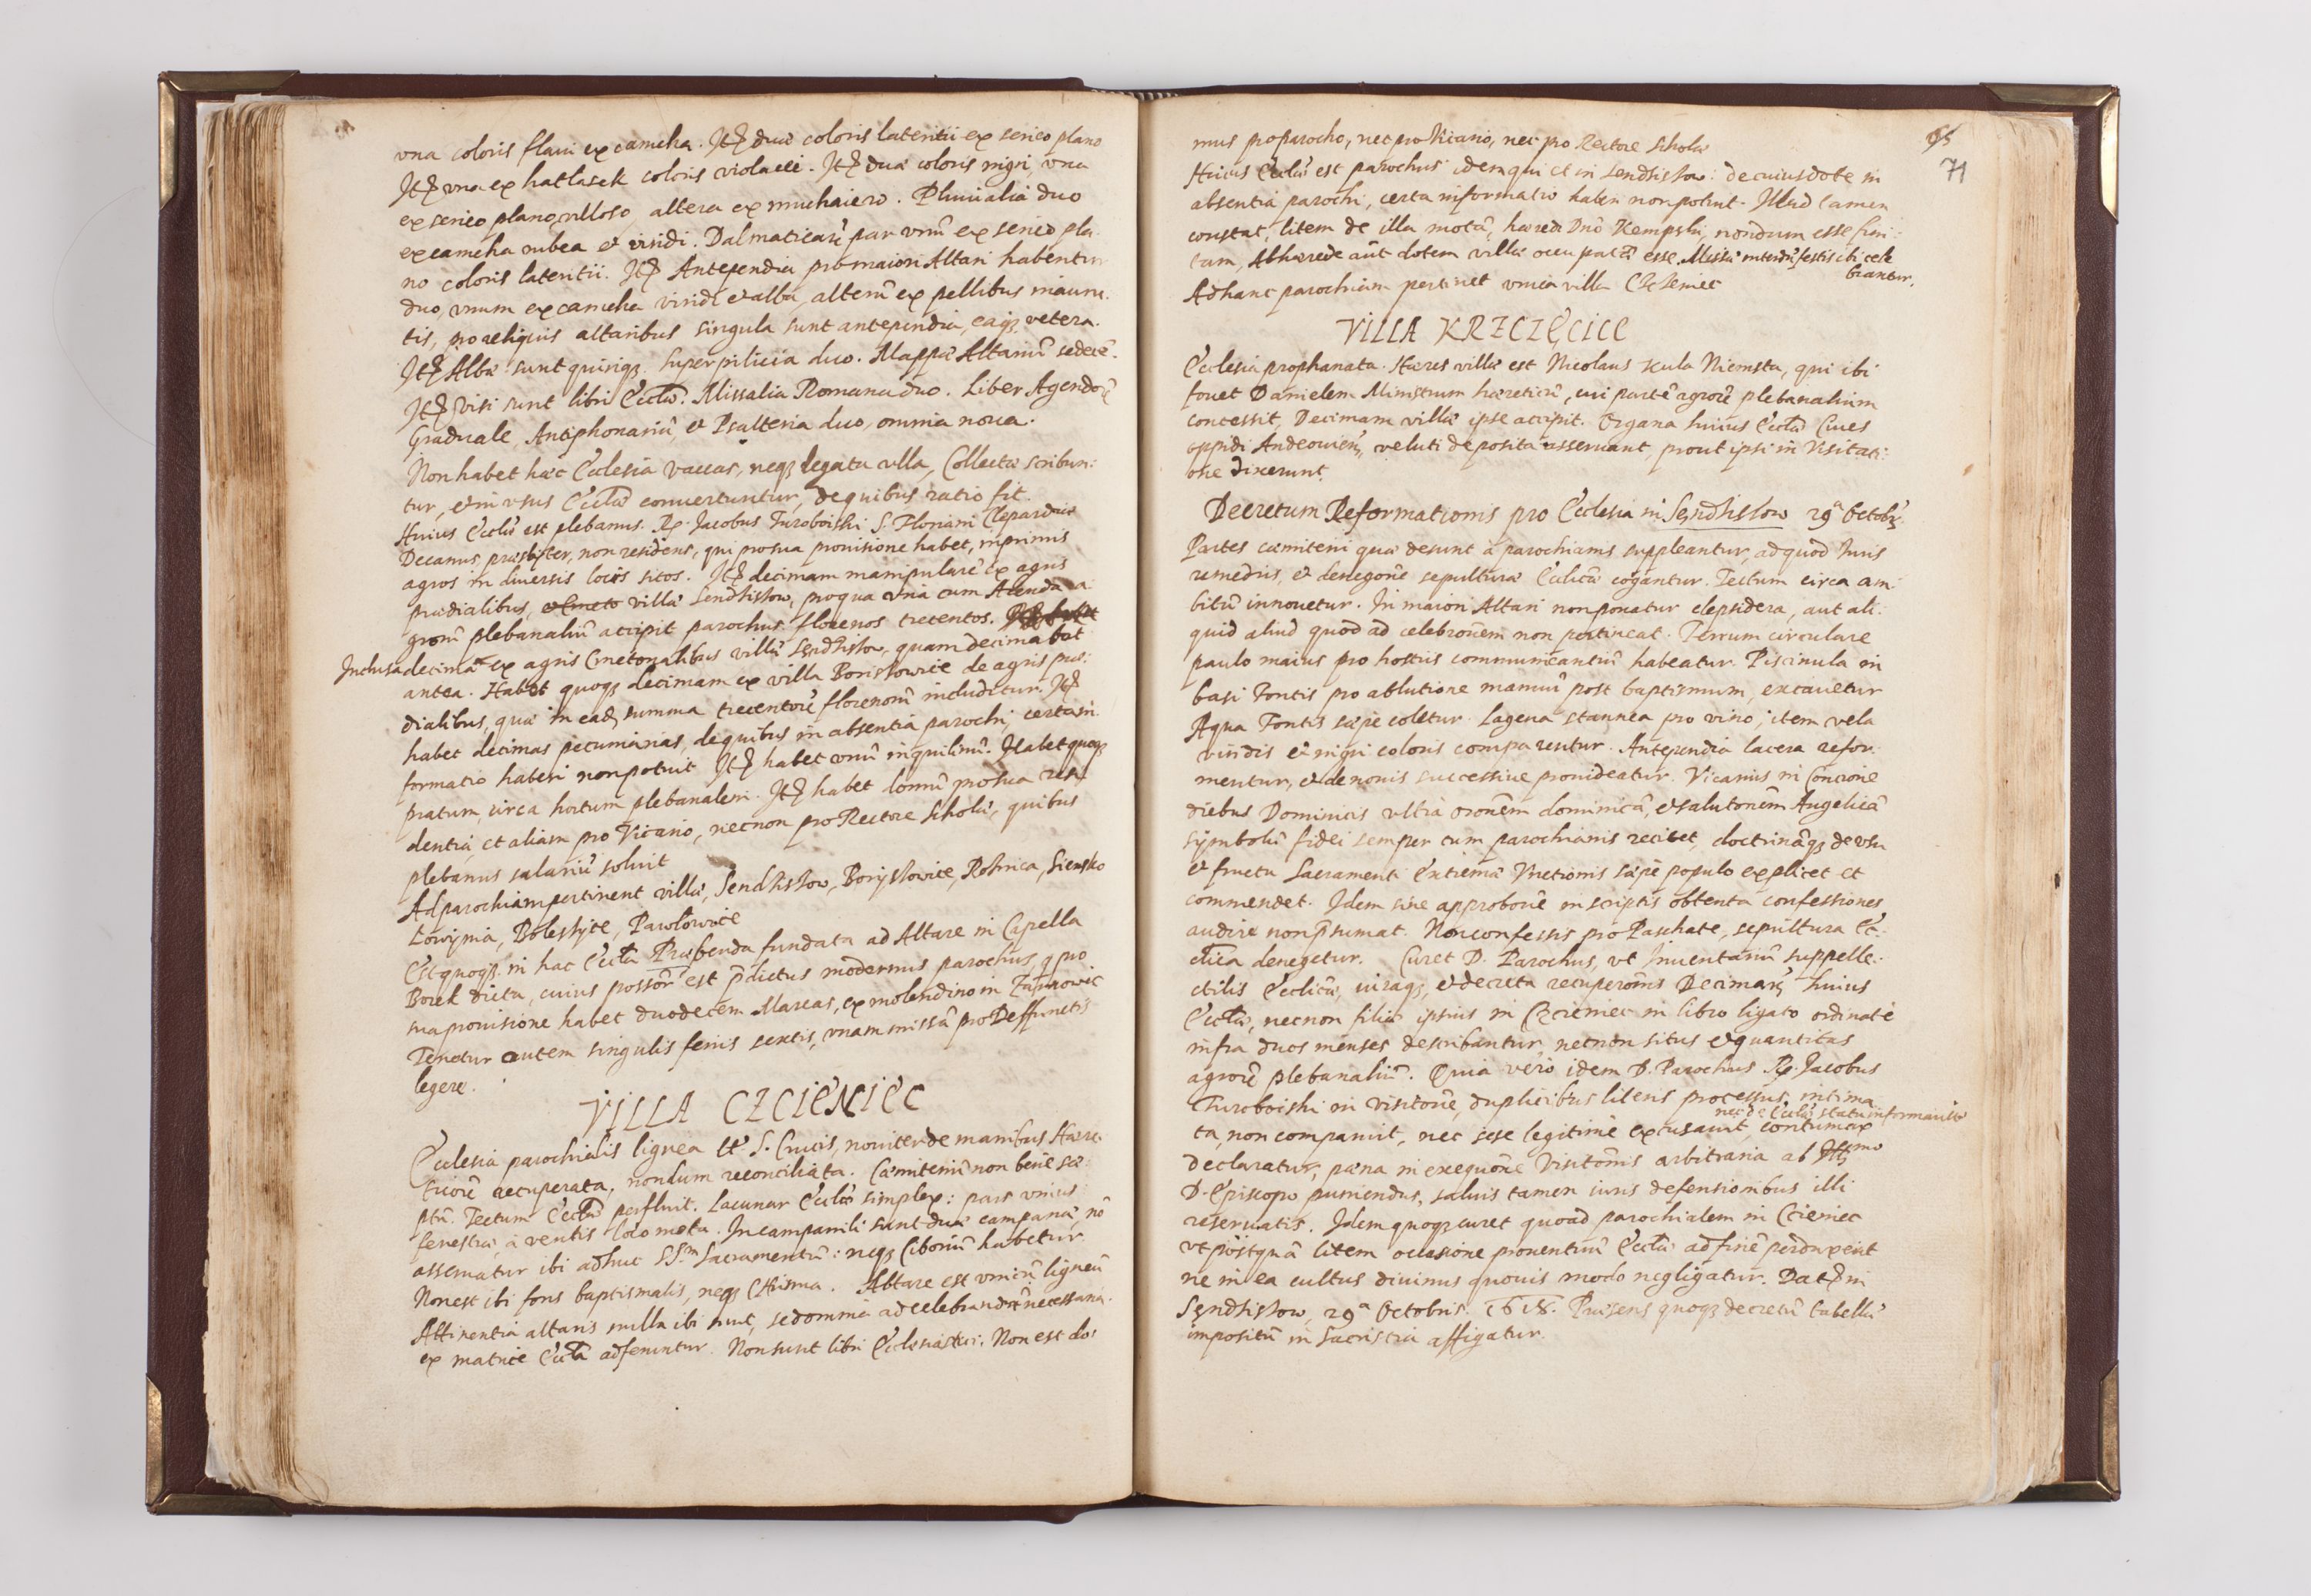 vna coloris flaui ex camcha. Itē duæ coloris lateritii ex serico plano
Itē vna ex hatlasek coloris violacei. Itē duæ coloris nigri, vna
ex serico plano, villoso, altera ex muchaiero. Pluuialia duo
ex camcha rubea et viridi. Dalmaticarū par vnū ex serico pla
no coloris lateritii. Itē Antependia pro maiori Altari habentur
duo, vnum ex camcha viridi et alba, alterū ex pellibus inaura
tis, pro reliquis altaribus singula sunt antependia, eaq; vetera.
Itē Albæ sunt quinq;. Superpilicia duo. Mappæ Altariū sedecē.
Itē Visi sunt libri Eccłæ. Missalia Romana duo. Liber Agendorū
Graduale, Antiphonariū, et Psalteria duo, omnia noua.
Non habet hæc Ecclesia vaccas, neq; legata vlla, Collectæ scribun:
tur, et in vsus Eccłæ conuertuntur, de quibus ratio fit.
Huius Eccłæ est plebanus. R. Jacobus Turoboiski S. Floriani Cleparduæ
Decanus, præsbiter, non residens, qui pro sua prouisione habet, inprimis
agros in diuersis locis sitos. Itē decimam manipularē ex agris
prædialibus, villæ Sendzisłow, pro qua vna cum Arenda a
grorū plebanaliū accipit parochus florenos trecentos.
Inclusa decima ex agris Cmetonalibus villæ Sendzisłow, quam decimabat
antea. Habet quoq; decimam ex villa Borisłowice de agris præ:
dialibus, quæ in eadē summa trecentorū florenorū includitur. Itē
habet decimas pecuniarias, de quibus in absentia parochi, certa in
formatio haberi non potuit Itē habet vnū inquilinū. Habet quoq;
pratum, circa hortum plebanalem. Itē habet domū pro sua resi
dentia, et aliam pro Vicario, necnon pro Rectore Scholæ, quibus
plebanus salariū soluit
Ad parochiam pertinent villæ, Sendzisłow, Borÿsłowice, Rożnica, Siensko
Łowynia, Boleskÿce, Pawłowice
Est quoq; in hac Eccła Præbenda fundata ad Altare in Capella
Borek dicta, cuius possōr est p̄dictus modernus parochus, q pro
sua prouisione habet duodecem Marcas, ex molendino in
Tenetur autem singulis feriis sextis, vnam missā pro Deffunctis
legere.
VILLA CZCIENIEC
Ecclesia parochialis lignea tt̄. S. Crucis, nouiter de manibus Hære
ticorū recuperata, nondum reconciliata. Cæmiteriū non bene sæ:
ptū. Tectum Eccłæ perfluit. Lacunar Eccłæ simplex: pars vnius
fenestræ, à ventis loco mota. In campanili sunt duæ campanæ, nō
asseruatur ibi adhuc SSm Sacramentū: neq; Ciboriū habetur
Non est ibi fons baptismalis, neq; Chrisma. Altare est vnicū ligneū
Attinentia altaris nulla ibi sunt, sed omnia ad celebrandū necessaria.
ex matrice Eccła adferuntur. Non sunt libri Ecclesiastici. Non est do:
65
71
mus pro parocho, nec pro Vicario, nec pro Rectore Scholæ
Huius Eccłæ est parochus idem qui et in Sendzisłow: de cuius dote in
absentia parochi, certa informatio haberi non potuit. Illud tamen
constat, litem de illa motā, hæredi Dn̄o Kempski, nondum esse fini:
tam, Ab hærede aūt dotem villæ occupatā esse. Missæ interdū festis ibi cele
brantur.
Ad hanc parochiam pertinet vnica villa Czcieniec
VILLA KRZCZĘCICE
Ecclesia prophanata. Hæres villæ est Nicolaus Niemsta, qui ibi
fouet Danielem Ministrum hæreticū, cui partē agrorū plebanalium
concessit, Decimam villæ ipse accipit. Organa huius Eccłæ Ciues
oppidi Andeouien̄, veluti deposita asseruant, prout ipsi in Visitati:
one dixerunt.
Decretum Reformationis pro Ecclesia in Sendzisłow 29ª Octobr:
Partes cæmiterii quæ desunt à parochianis suppleantur, ad quod Iuris
remediis, et denegōne sepulturæ Eccłicæ cogantur. Tectum circa am:
bitū innouetur. In maiori Altari non ponatur clepsidera, aut ali:
quid aliud quod ad celebrōnem non pertineat. Ferrum circulare
paulo maius pro hostiis communicantiū habeatur. Piscinula in
basi Fontis pro ablutione manuū post baptismum, excauetur
Aqua Fontis sæpe coletur. Lagena stannea pro vino; item vela
viridis et nigri coloris comparentur. Antependia lacera refor:
mentur, et de nouis successiue prouideatur. Vicarius in Concione
diebus Dominicis vltra orōnem dominicā, et salutōnem Angelicā
sÿmbolū fidei semper cum parochianis recitet, doctrināq; de vsu
et fructu Sacramenti Extremæ Vnctionis sæpe populo explicet et
commendet. Idem sine approbōne in scriptis obtenta confessiones
audire non p̄sumat. Non confessis pro Paschate, sepultura Ec:
cłica denegetur. Curet D. Parochus, vt Inuentariū suppelle:
ctilis Ecclicæ, iuraq;, et decreta recuperōnis Decimarū huius
Eccłæ, necnon filiæ ipsius in Czcieniec in libro ligato ordinatè
infra duos menses describantur, necnon situs et quantitas
agrorū plebanaliū. Quia vero idem D. Parochus R. Jacobus
Turoboiski in visitōne, duplicibus literis processus, intima
nec de Eccłæ statu informauit
ta, non comparuit, nec sese legitime excusauit, contumax
declaratur, pæna in exequōne Visitōnis arbitraria ab Illmo
D. Episcopo puniendus, saluis tamen iuris defensionibus illi
reseruatis. Idem quoq; curet quoad parochialem in Czcieniec
vt postquā litem occasione prouentuū Eccłæ ad finē perduxerit
ne in ea cultus diuinus quouis modo negligatur. Datē in
Sendzisłow, 29ª Octobris. 1618. Præsens quoq; decretū tabellæ
impositū in Sacristia affigatur.